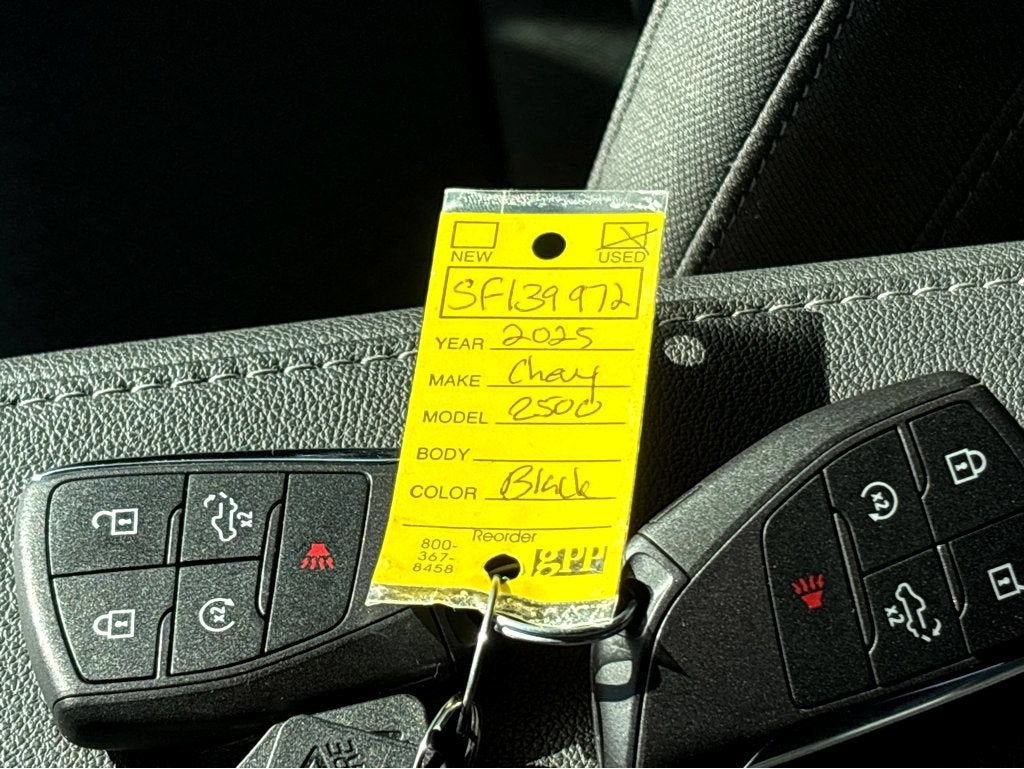 NEW USED
SF139972
YEAR 2025
MAKE Chevy
MODEL 2500
BODY
COLOR Black
Reorder
800-
367-
8458
gpp
x2
x2
x2
x2